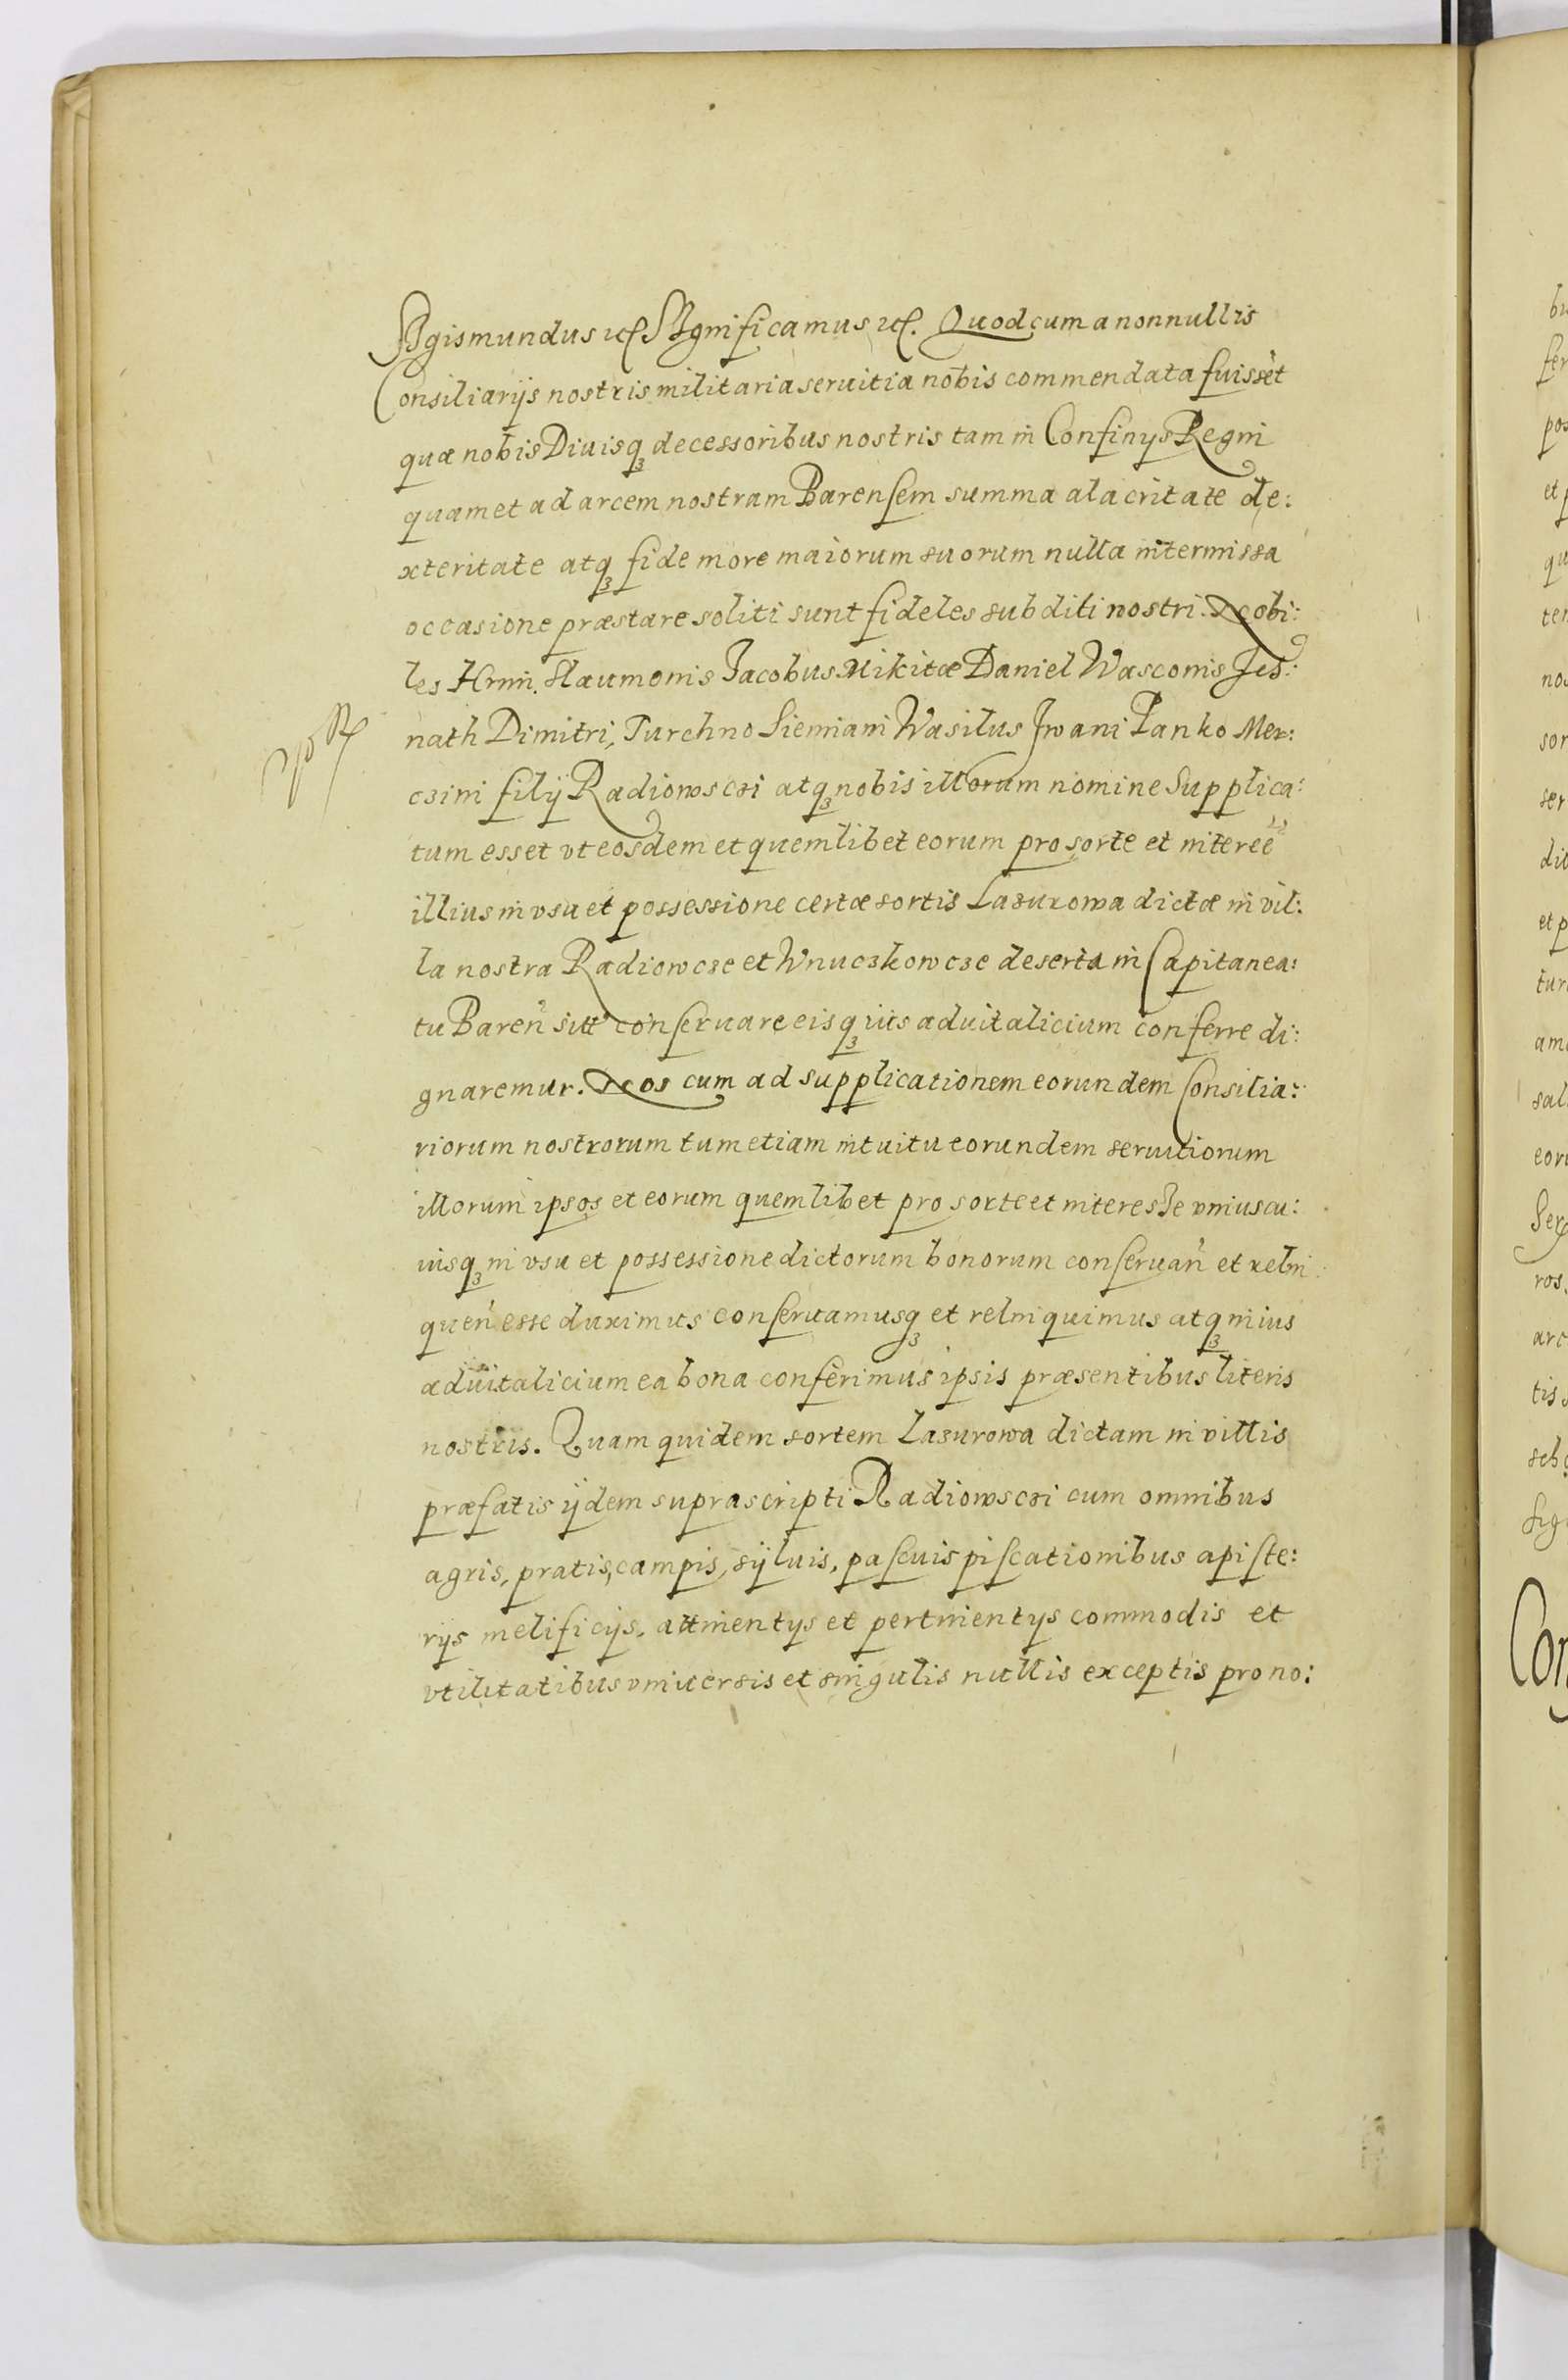 Sigismundus etc Significamus etc. Quod cum a nonnullis
Consiliarijs nostris militaria seruitia nobis commendata fuissēt
quæ nobis Diuisq3 decessoribus nostris tam in Confinys Regni
quam et ad arcem nostram Barensem summa alacritate de:
xteritate atq3 fide more maiorum suorum nulla intermissa
occasione præstare soliti sunt fideles subditi nostri. Nobi:
les Hrini. Naumonis Jacobus Mikitæ Daniel Wasconis Jed:
nath Dimitri, Turchno Siemiani Wasilus Jwani Panko Mer:
czini filij Radiowsczi atq3 nobis illorum nomine Supplica:
tum esset vt eosdem et quemlibet eorum pro sorte et interēe
illius in vsu et possessione certæ sortis Lazurowa dictæ in vil:
la nostra Radiowcze et Wnuczkowcze deserta in Capitanea:
tu Bareñ sitt conseruare eisq3 ius aduitalicium conferre di:
gnaremur. Nos cum ad supplicationem eorundem Consilia:
riorum nostrorum tum etiam intuitu eorundem seruitiorum
illorum ipsos et eorum quemlibet pro sorte et interesse vniuscu:
iusq3 in vsu et possessione dictorum bonorum conseruañ et relin
queñ esse duximus conseruamusq3 et relinquimus atq3 in ius
aduitalicium ea bona conferimus ipsis præsentibus literis
nostris. Quam quidem sortem Lazurowa dictam in villis
præfatis ijdem suprascripti Radiowsczi cum omnibus
agris, pratis, campis, syluis, pascuis piscationibus apiste:
rijs melificijs, attinentys et pertinentys commodis et
vtilitatibus vniuersis et singulis nullis exceptis pro no: